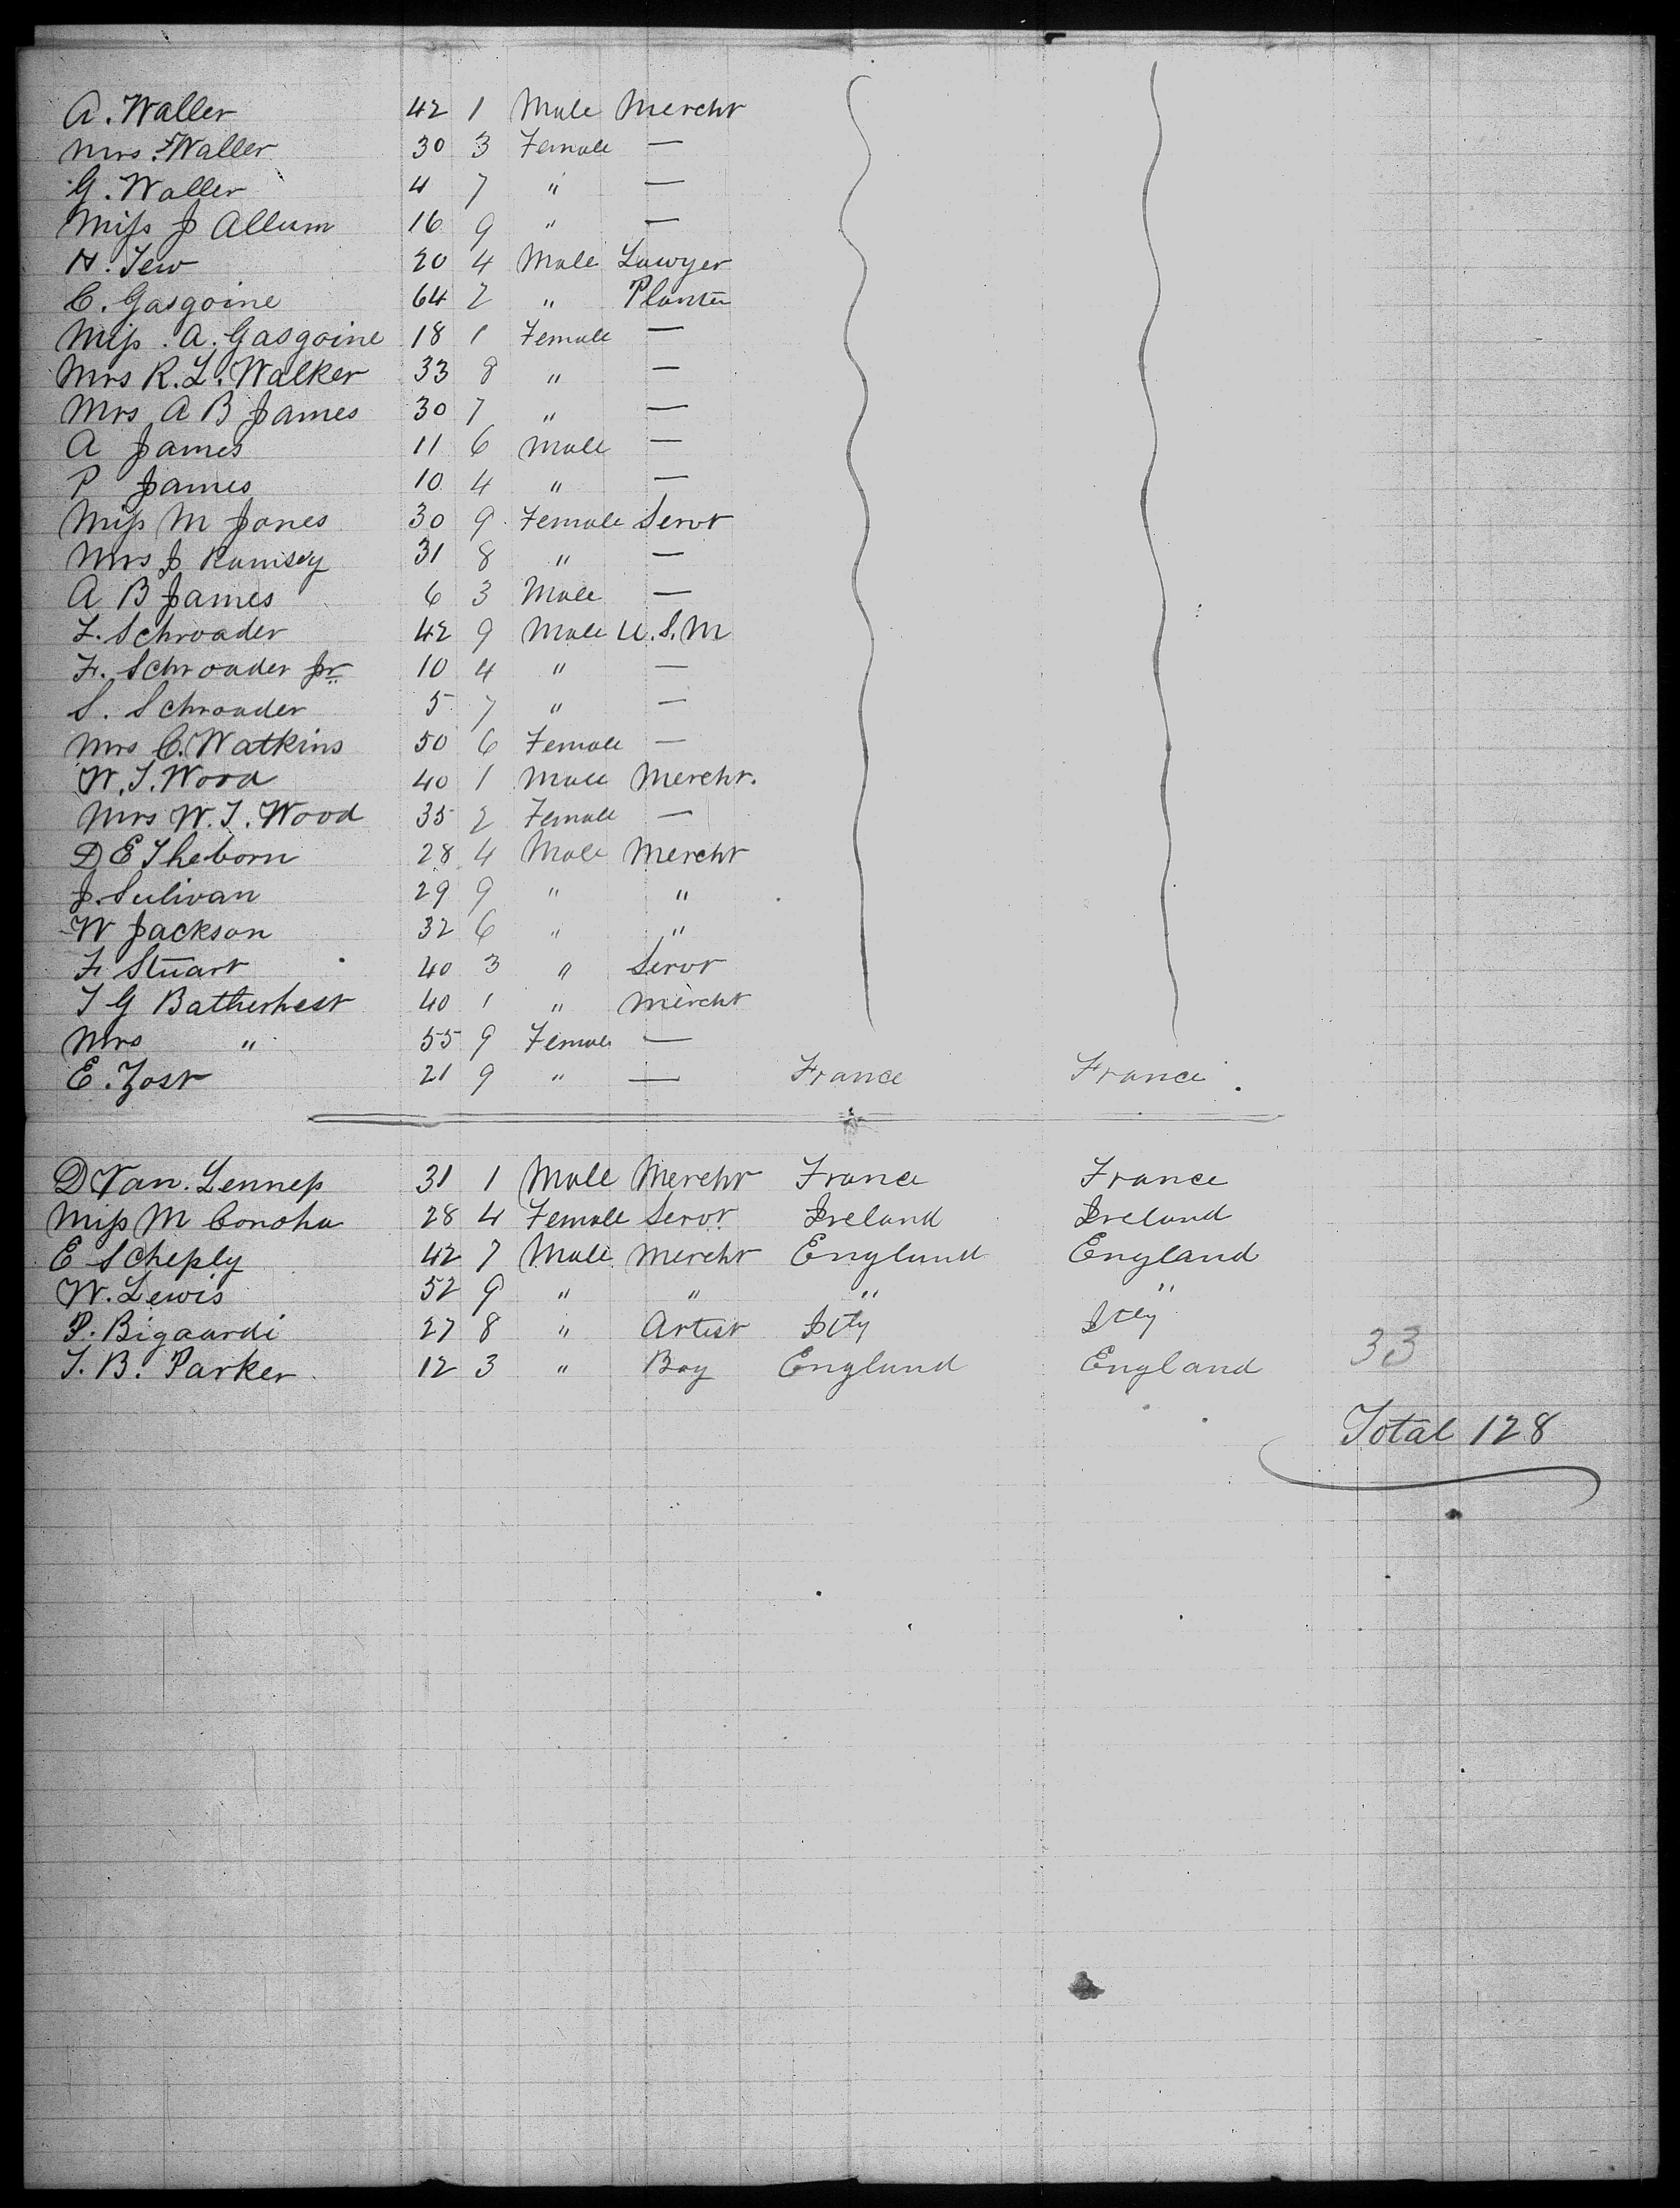 A. Waller 42 1 Male Mercht
Mrs. F Waller 30 3 Female —
G. Waller 4 7 " —
Miss J Allum 16 9 " —
H. Tew 20 4 Male Lawyer
C. Gasgoine 64 2 " Planter
Miss. A. Gasgoine 18 1 Female —
Mrs R. L. Walker 33 8 " —
Mrs A B James 30 7 " —
A James 11 6 Male —
P James 10 4 " —
Miss M Jones 30 9 Female Servt
Mrs J Ramsey 31 8 " —
A B James 6 3 Male —
F. Schroader 42 9 Male U.S.M
F. Schroader Jr 10 4 " —
S. Schroader 5 7 " —
Mrs C. Watkins 50 6 Female —
W. T. Wood 40 1 Male Mercht.
Mrs W. T. Wood 35 2 Female —
D E Theborn 28 4 Male Mercht
J. Sulivan 29 9 " "
W Jackson 32 6 " "
F. Stuart 40 3 " Servt
T G Batherhest 40 1 " Mercht
Mrs " 55 9 Female —
E. Zost 21 9 " — France France.
D Van. Lennep 31 1 Male Mercht France France
Miss M Conoha 28 4 Female Servt Ireland Ireland
E Scheply 42 7 Male Mercht England England
W. Lewis 52 9 " " " "
P. Bigaardi 27 8 " Artist Itly Itly
T. B. Parker 12 3 " Boy England England 33
Total 128